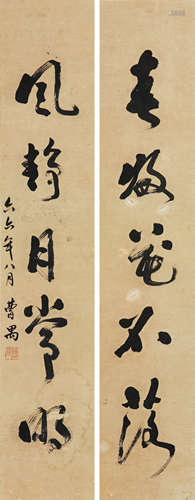 春發花不落
風靜月常明
六六年八月
曹禺